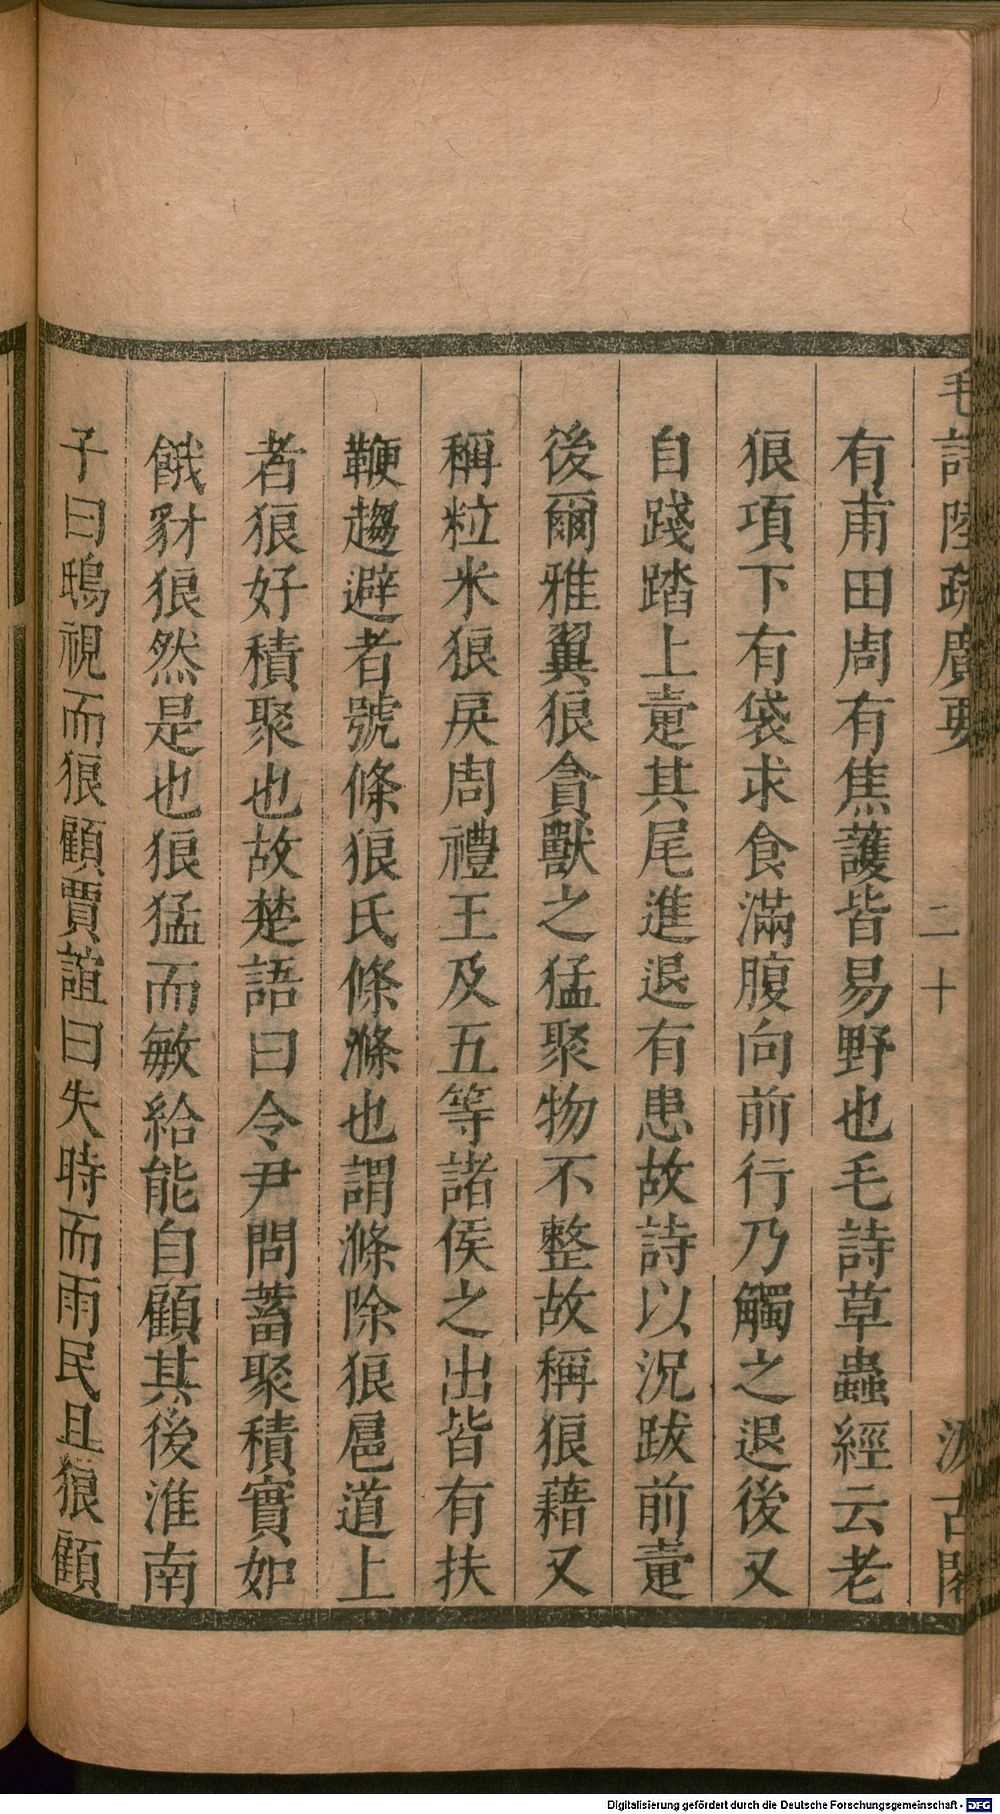 毛詩陸疏廣要 二十 汲古閣
有甫田周有焦護皆易野也毛詩草蟲經云老
狼項下有袋求食滿腹向前行乃觸之退後又
自踐踏上疐其尾進退有患故詩以況跋前疐
後爾雅翼狼貪獸之猛聚物不整故稱狼藉又
稱粒米狼戾周禮王及五等諸侯之出皆有扶
鞭趨避者號條狼氏條滌也謂滌除狼扈道上
者狼好積聚也故楚語曰令尹問蓄聚積實如
餓豺狼然是也狼猛而敏給能自顧其後淮南
子曰鴟視而狼顧賈誼曰失時而雨民且狼顧
Digitalisierung gefördert durch die Deutsche Forschungsgemeinschaft - DFG